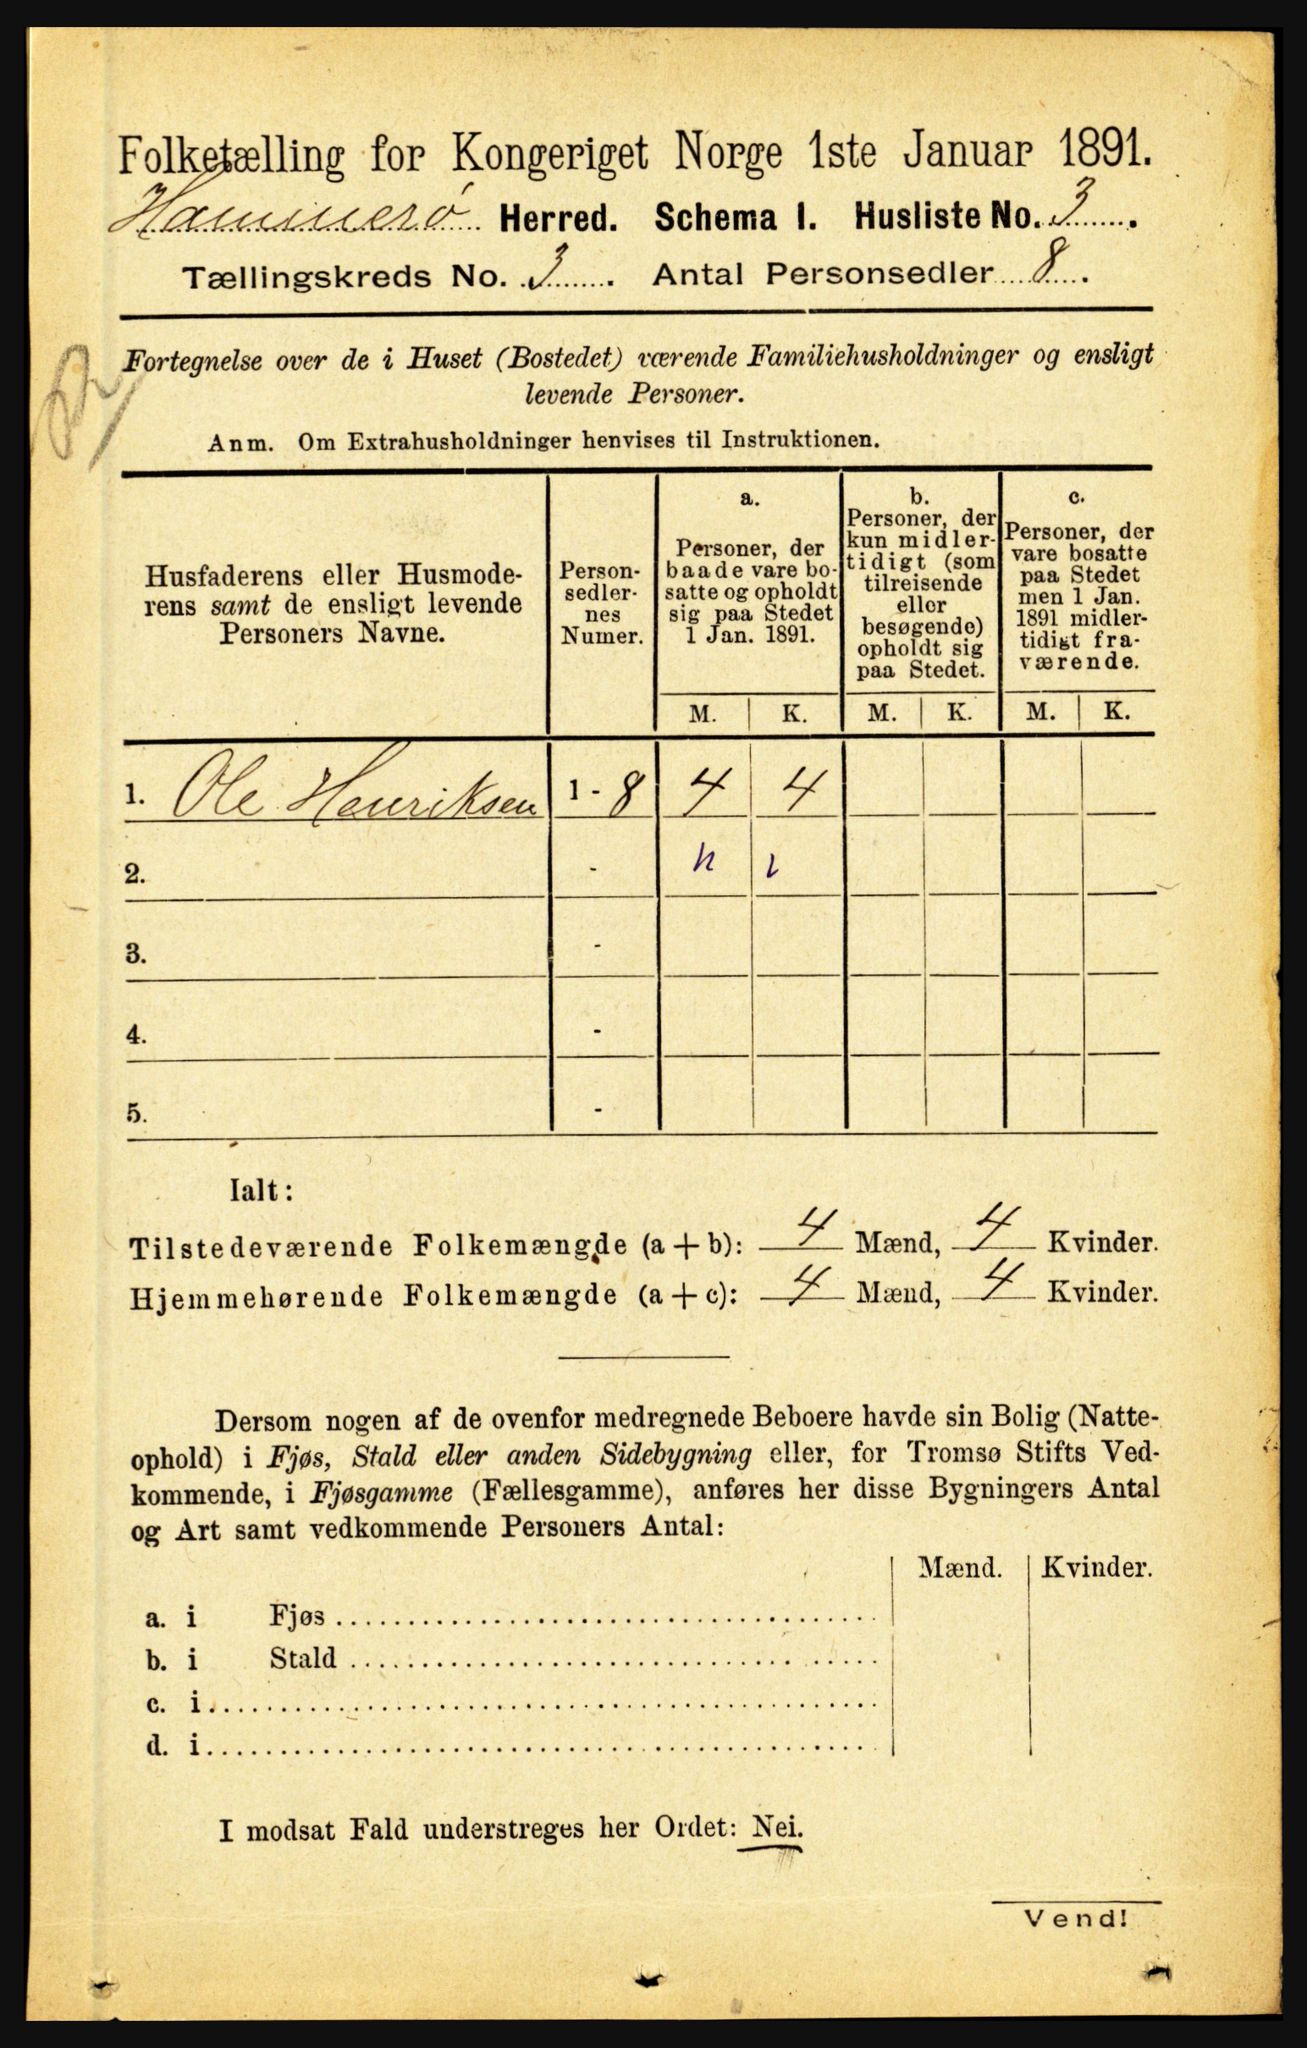 Folketælling for Kongeriget Norge 1ste Januar 1891.
Hammerø Herred. Schema I. Husliste No. 3.
Tællingskreds No. 3. Antal Personsedler 8.
Fortegnelse over de i Huset (Bostedet) værende Familiehusholdninger og ensligt
levende Personer.
Anm. Om Extrahusholdninger henvises til Instruktionen.
Husfaderens eller Husmode-
rens samt de ensligt levende
Personers Navne.
Person-
sedler-
nes
Numer.
a.
Personer, der
baade vare bo-
satte og opholdt
sig paa Stedet
1 Jan. 1891.
b.
Personer, der
kun midler-
tidigt (som
tilreisende
eller
besøgende)
opholdt sig
paa Stedet.
c.
Personer, der
vare bosatte
paa Stedet
men 1 Jan.
1891 midler-
tidigt fra-
værende.
M. K. M. K. M. K.
1. Ole Henriksen 1 - 8 4 4
2. -
3. -
4. -
5. -
Ialt:
Tilstedeværende Folkemængde (a + b): 4 Mænd, 4 Kvinder.
Hjemmehørende Folkemængde (a + c): 4 Mænd, 4 Kvinder.
Dersom nogen af de ovenfor medregnede Beboere havde sin Bolig (Natte-
ophold) i Fjøs, Stald eller anden Sidebygning eller, for Tromsø Stifts Ved-
kommende, i Fjøsgamme (Fællesgamme), anføres her disse Bygningers Antal
og Art samt vedkommende Personers Antal:
Mænd. Kvinder.
a. i Fjøs
b. i Stald
c. i
d. i
I modsat Fald understreges her Ordet: Nei.
Vend!